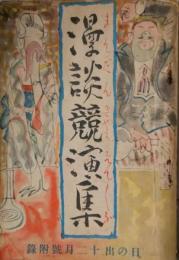 漫談競演集
日の出十二月號附錄